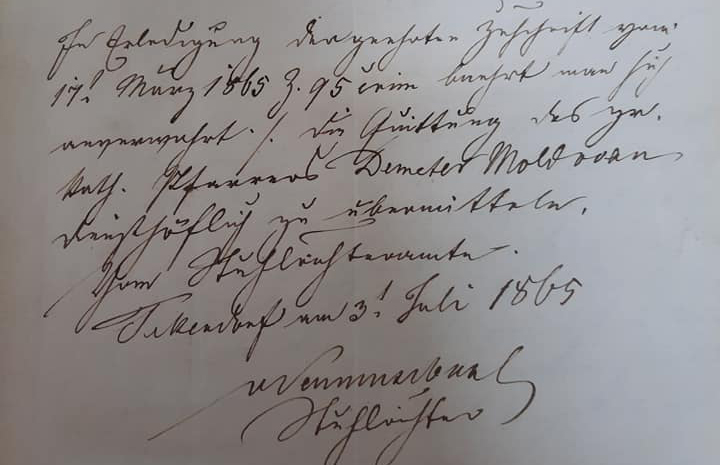 In Erledigung der geehrten Zuschrift vom
17t. März 1865 Z. 95 crim beehrt man sich
anverwahrt ·/. die Quittung des gr.
kath. Pfarrers Demeter Moldovan
diensthöflich zu übermitteln.
Vom Stuhlrichteramte
Tekendorf am 3t. Juli 1865
Stuhlrichter